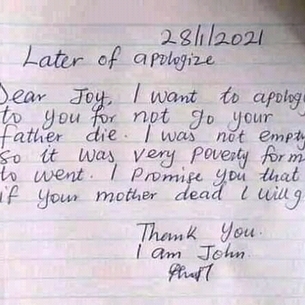 28/1/2021
Later of apologize
Dear Joy, I want to apolog
to you for not go your
father die. I was not empty
so it was very poverty for m
to went. I Promise you that
if your mother dead I will g
Thank You.
I am John